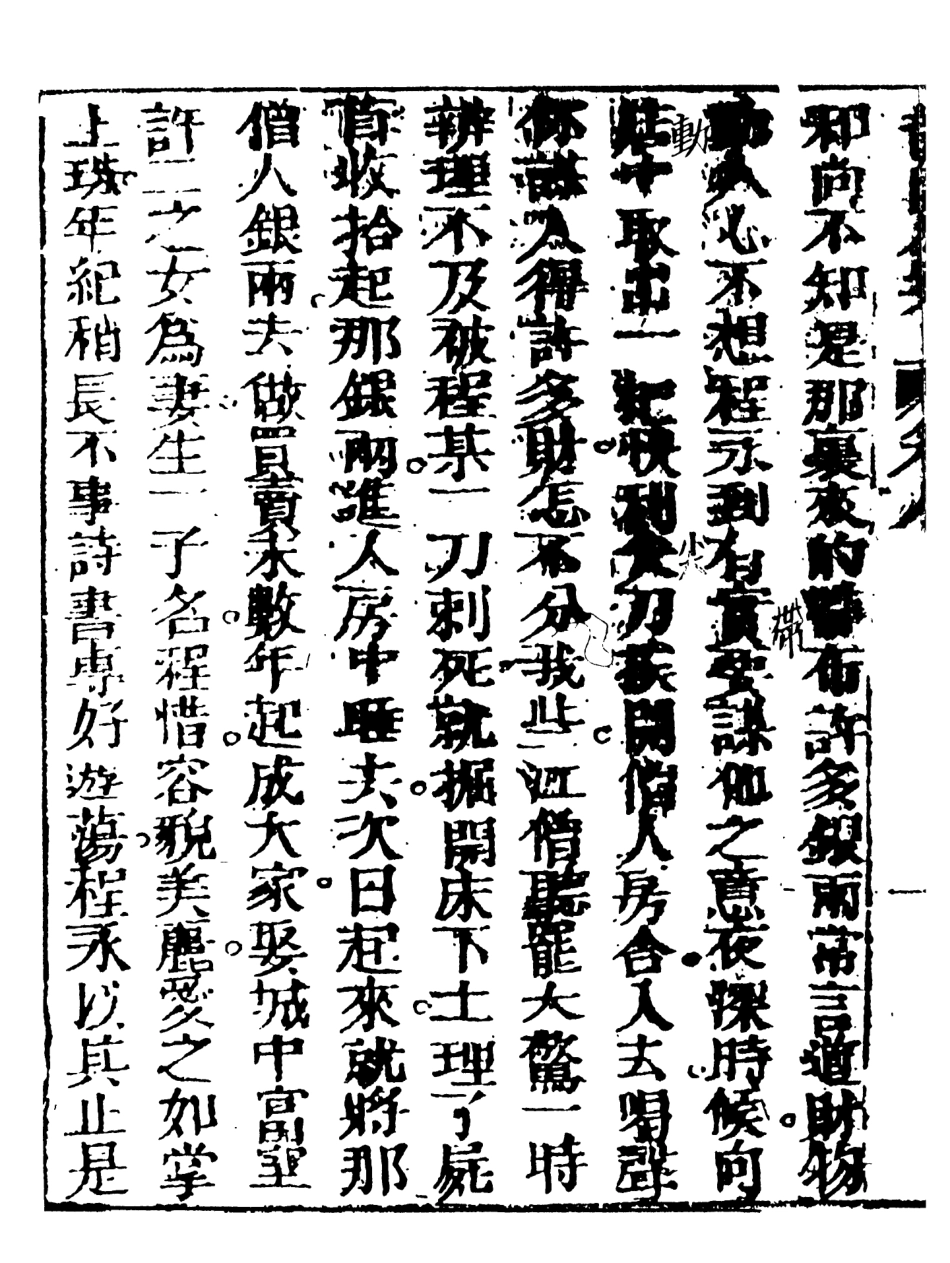 和尚不知是那裏來的帶有許多銀兩常言道財物
動人心不想程永到有賣要謀他之意夜深時候向
店中取出一把快利尖刀挨開僧人房舍入去喝聲
你謀人得許多財怎不分我些江僧聽罷大驚一時
辨理不及被程某一刀刺死就掘開床下土埋了屍
首收拾起那銀兩進人房中睡去次日起來就將那
僧人銀兩去做買賣未數年起成大家娶城中富室
許二之女爲妻生一子名程惜容貌美麗愛之如掌
上珠年紀稍長不事詩書專好遊蕩程永以其止是
動
尖
帶